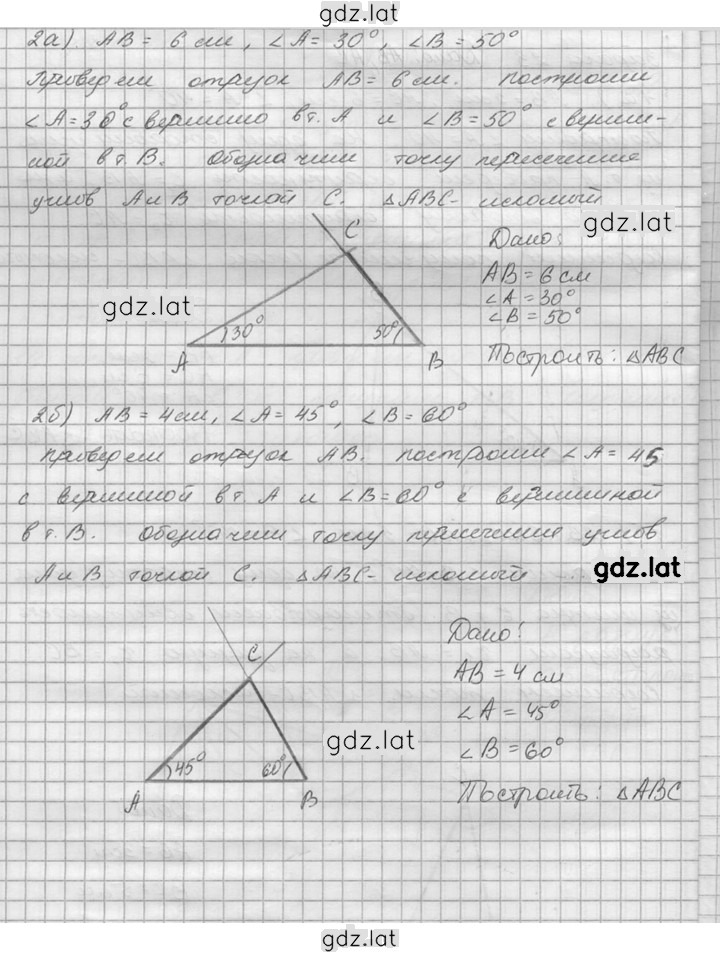 gdz.lat
2а) AB = 6 см, ∠A = 30°, ∠B = 50°
Проведем отрезок AB = 6 см. построим
∠A = 30° с вершино в т. A и ∠B = 50° с верши-
ной в т. B. Обозначим точку пересечение
углов A и B точкой C. △ABC - искомый
gdz.lat
Дано:
AB = 6 см
∠A = 30°
∠B = 50°
Построить: △ABC
C
gdz.lat
30°
50°
A
B
2б) AB = 4 см, ∠A = 45°, ∠B = 60°
Проведем отрезок AB. построим ∠A = 45
с вершиной в т. A и ∠B = 60° с вершиной
в т. B. Обозначим точку пересечение углов
A и B точкой C. △ABC - искомый
gdz.lat
Дано:
AB = 4 см
∠A = 45°
∠B = 60°
Построить: △ABC
C
gdz.lat
45°
60°
A
B
gdz.lat